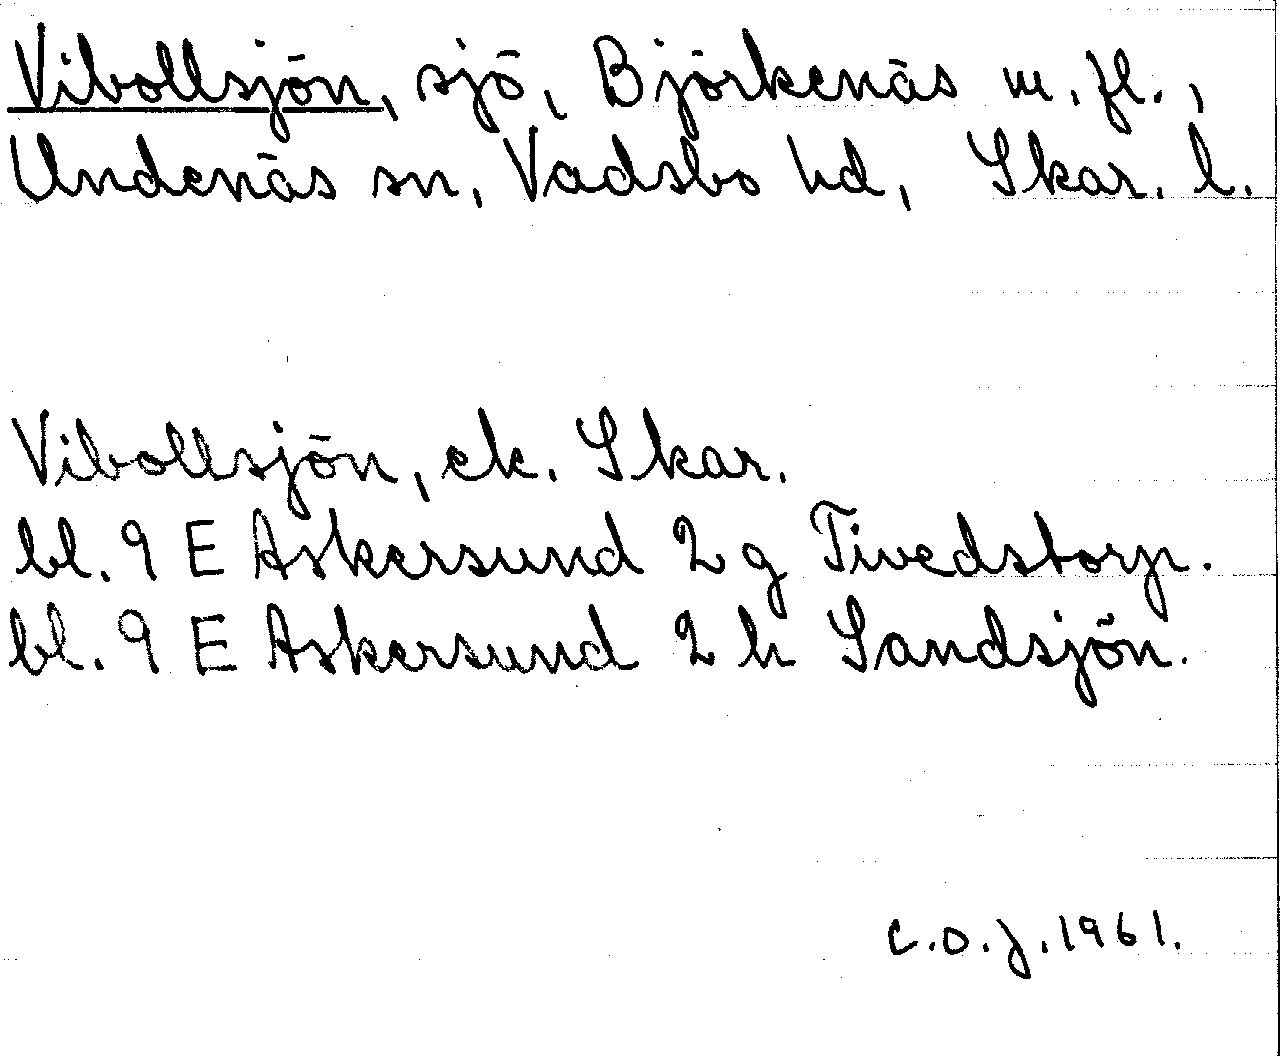 Vibollsjön, sjö, Björkenäs m. fl.,
Undenäs sn, Vadsbo hd, Skar. l.
Vibollsjön, ek. Skar.
bl. 9 E Askersund 2 g Tivedstorp.
bl. 9 E Askersund 2 h Sandsjön.
C.O.J. 1961.